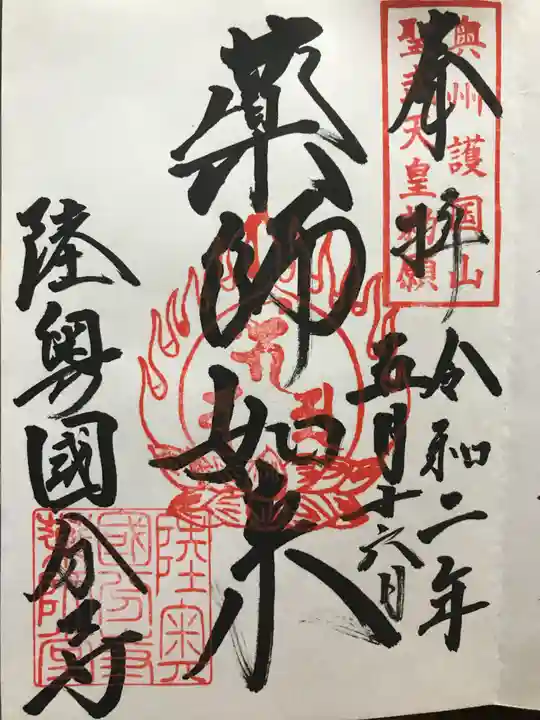 奉拝
奥州護国山
聖武天皇勅願
令和二年
五月十六日
薬師如来
陸奥國分寺
陸奥
國分寺
薬師堂